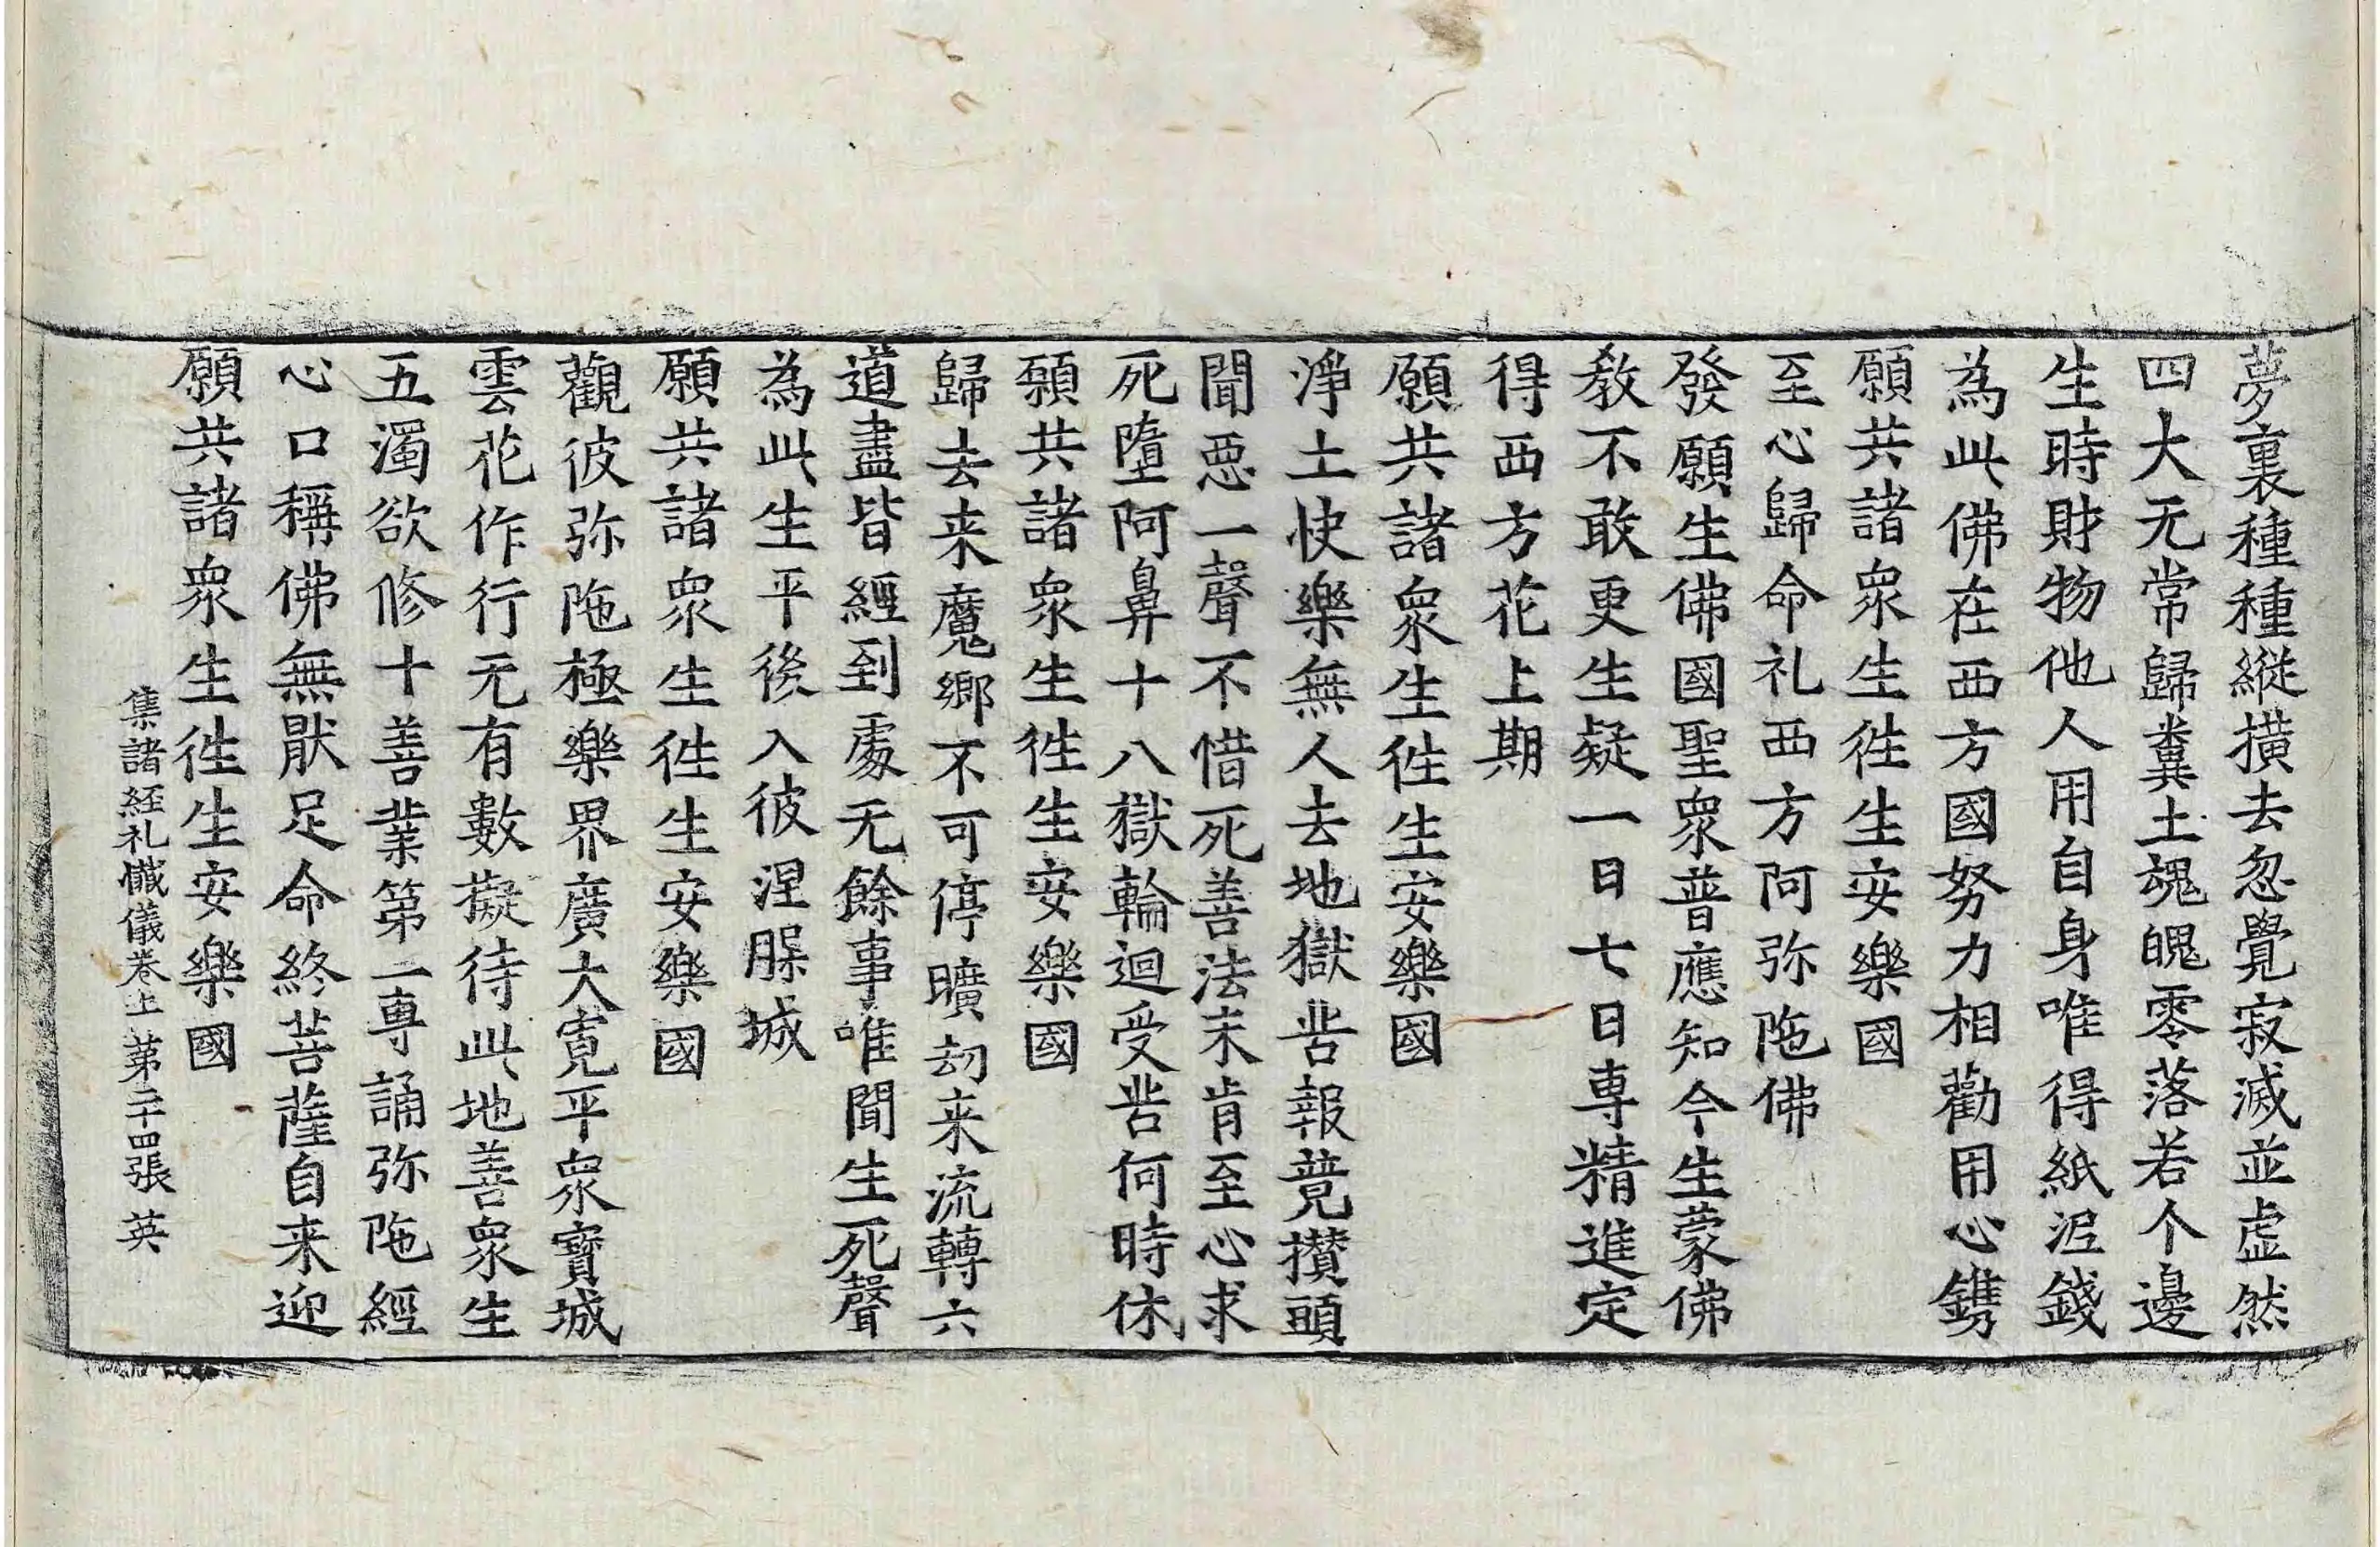 夢裏種種縱橫去忽覺寂滅並虛然
四大无常歸糞土魂魄零落若个邊
生時財物他人用自身唯得紙涩錢
為此佛在西方國努力相勸用心鐫
願共諸衆生徃生安樂國
至心歸命礼西方阿弥陁佛
發願生佛國聖衆普應知今生蒙佛
教不敢更生疑一日七日専精進定
得西方花上期
願共諸衆生徃生安樂國
淨土快樂無人去地獄苦報竟攅頭
聞惡一聲不惜死善法末肯至心求
死墮阿鼻十八獄輪迴受苦何時休
願共諸衆生徃生安樂國
歸去来魔鄉不可停曠刧来流轉六
道盡皆經到處无餘事唯聞生死聲
為此生平後入彼涅槃城
願共諸衆生徃生安樂國
觀彼弥陁極樂界廣大寛平衆寶城
雲花作行无有數擬待此地善衆生
五濁欲修十善業第一専誦弥陁經
心口稱佛無猒足命終菩薩自来迎
願共諸衆生徃生安樂國
集諸経礼懺儀卷上 苐二十四張 英